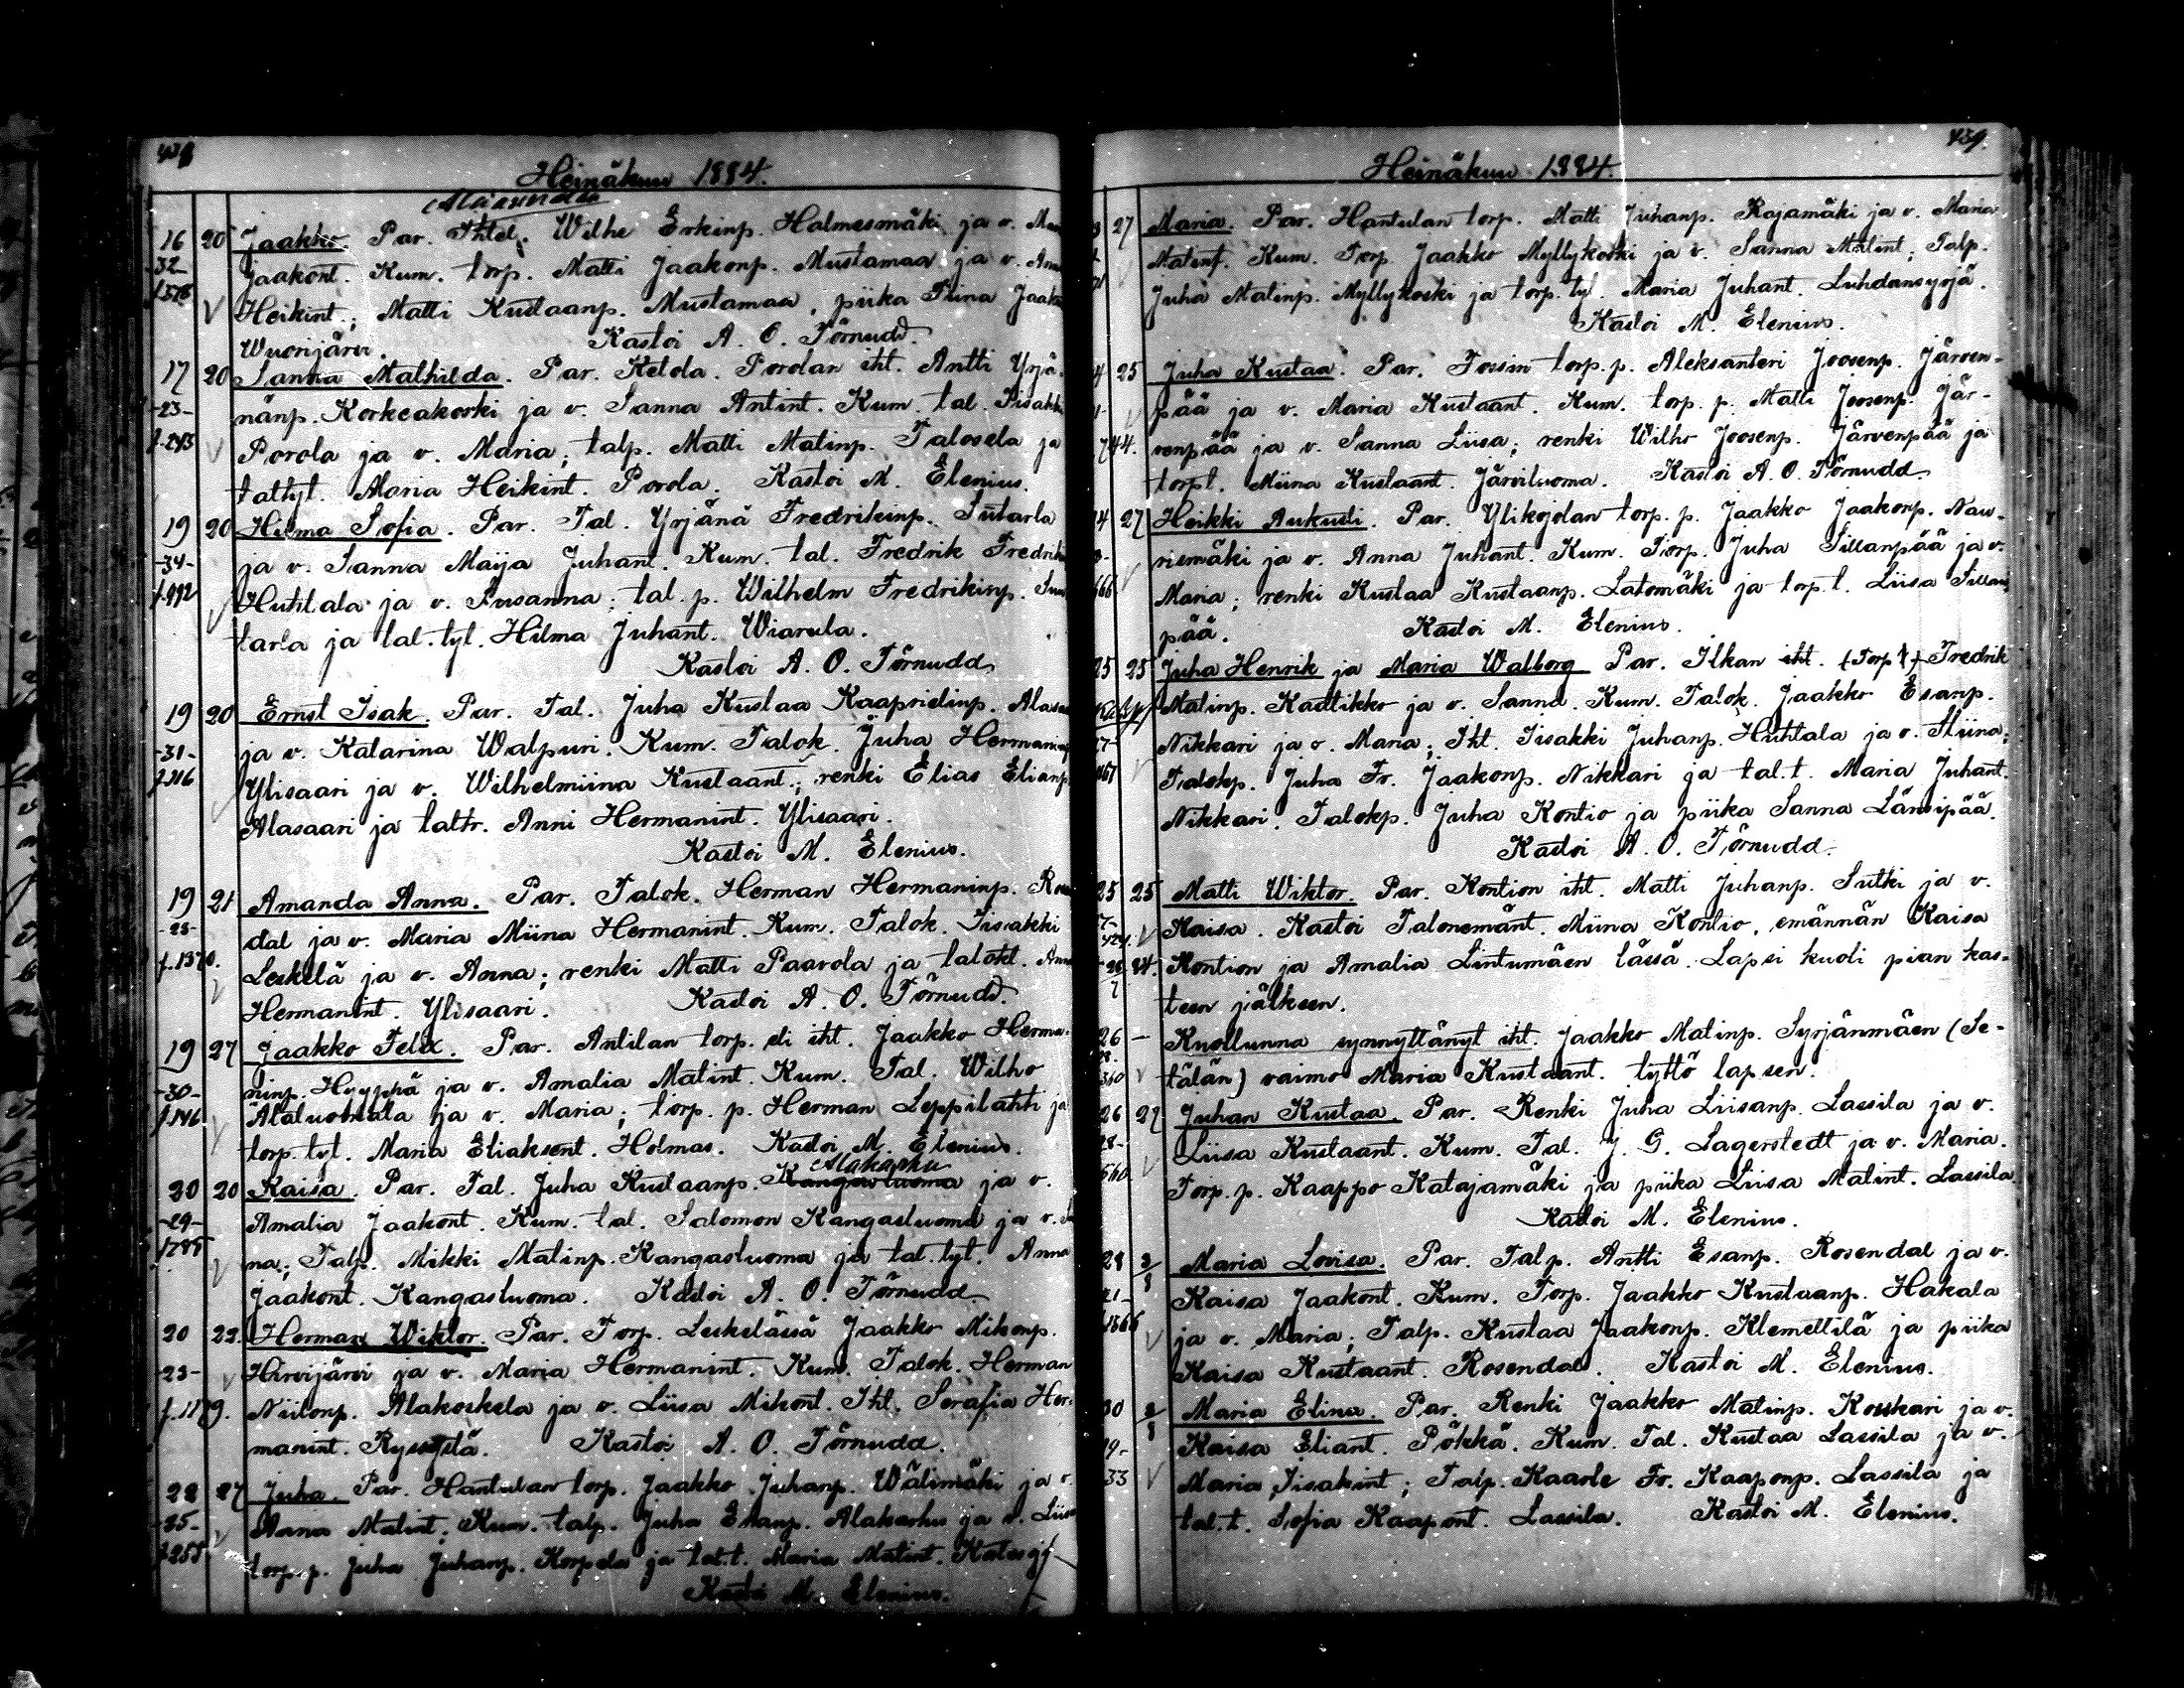 Heinäkuu 1884.
16 20 Jaakko. Par. Ihtel. Wilhe Erkinp. Halmesmäki ja v.
32 Jaakont. Kum. torp. Matti Jaakonp. Mustamaa ja v.
Heikint.; Matti Kustaanp. Mustamaa, piika Tiina
Wuorijärvi. Kastoi A. O. Törnudd.
17 20 Sanna Mathilda. Par. Ketola. Porolan iht. Antti Yrjä-
-23- nänp. Korkeakoski ja v. Sanna Antint. Kum. tal. Iisakki
f. 243 Porola ja v. Maria; talp. Matti Matinp. Talosela ja
taltyt. Maria Heikint. Porola. Kastoi M. Elenius.
19 20 Hilma Sofia. Par. Tal. Yrjänä Fredrikinp.
-34- ja v. Sanna Maija Juhant. Kum. tal. Fredrik
Huhtala ja v. Susanna; tal. p. Wilhelm Fredrikinp.
tarla ja tal. tyt. Hilma Juhant. Wiarula.
Kastoi A. O. Törnudd
19 20 Ernst Isak. Par. Tal. Juha Kustaa Kaaprielinp.
-31- ja v. Katarina Walpuri. Kum. Talok. Juha
f. 216 Ylisaari ja v. Wilhelmiina Kustaant.; renki Elias Elianp
Alasaari ja taltr. Anni Hermanint. Ylisaari.
Kastoi M. Elenius.
19 21 Amanda Anna. Par. Talok. Herman Hermaninp.
-23- dal ja v. Maria Miina Hermanint. Kum. Talok. Iisakki
f. 1370. Leskelä ja v. Anna; renki Matti Paavola ja talokt.
Hermanint. Ylisaari. Kastoi A. O. Törnudd.
19 27 Jaakko Felix. Par. Antilan torp. eli iht. Jaakko Herma-
-30- ninp. Hyyppä ja v. Amalia Matint. Kum. Tal. Wilho
f. 146 Alaluomala ja v. Maria; torp. p. Herman Leppilahti ja
torp. tyt. Maria Eliaksent. Holmas. Kastoi M. Elenius.
Alakarhu
20 20 Kaisa. Par. Tal. Juha Kustaanp. Kangasluoma ja v.
-29- Amalia Jaakont. Kum. tal. Salomon Kangasluoma ja v.
na; Talp. Mikki Matinp. Kangasluoma ja tal. tyt. Anna
Jaakont. Kangasluoma. Kastoi A. O. Törnudd
20 22. Herman Wiktor. Par. Torp. Leskelässä Jaakko Mikonp.
-23- Hirvijärvi ja v. Maria Hermanint. Kum. Talok. Herman
f. 1179. Niilonp. Alakoskela ja v. Liisa Mikont. Iht. Serafia Her-
manint. Kastoi A. O. Törnudd.
22 27 Juha. Par. Hantulan torp. Jaakko Juhanp. Wälimäki ja v.
-35- Maria Matint. Kum. talp. Juha Esanp. Alakarhu ja v. Liisa
f. 255 torp. p. Juha Juhanp. Korpela ja tal. t. Maria Matint.
Kastoi M. Elenius.
439.
Heinäkuu 1884.
27 Maria. Par. Hantulan torp. Matti Juhanp. Rajamäki ja v. Maria
Matint. Kum. Torp. Jaakko Myllykoski ja v. Sanna Matint; Talp.
Juha Matinp. Myllykoski ja torp. tyt. Maria Juhant. Luhdansyrjä.
Kastoi M. Elenius.
4 25 Juha Kustaa. Par. Tossin torp. p. Aleksanteri Joosenp. Järven-
pää ja v. Maria Kustaant. Kum. torp. p. Matti Joosenp. Jär-
744. venpää ja v. Sanna Liisa; renki Wilho Joosenp. Järvenpää ja
torpt. Miina Kustaant. Järviluoma. Kastoi A. O. Törnudd
4 27 Heikki Aukusti. Par. Ylikojolan torp. p. Jaakko Jaakonp. Nau-
rismäki ja v. Anna Juhant. Kum. Torp. Juha Sillanpää ja v.
666 Maria; renki Kustaa Kustaanp. Latomäki ja torp. t. Liisa Sillan-
pää. Kastoi M. Elenius.
25 25 Juha Henrik ja Maria Walborg Par. Ilkan iht. (Torp?) Fredrik
Matinp. Kaatikko ja v. Sanna. Kum. Talok. Jaakko Esanp.
Nikkari ja v. Maria; Iht. Iisakki Juhanp. Huhtala ja v. Miina;
Talokp. Juha Fr. Jaakonp. Nikkari ja tal. t. Maria Juhant.
Nikkari. Talokp. Juha Kontio ja piika Sanna Länsipää.
Kastoi A. O. Törnudd.
25 25 Matti Wiktor. Par. Kontion iht. Matti Juhanp. Sutki ja v.
Kaisa. Kastoi Talonemänt. Miina Kontio, emännän Kaisa
Kontion ja Amalia Lintumäen läsnä. Lapsi kuoli pian kas-
teen jälkeen.
26 – Kuollunna synnyttänyt iht. Jaakko Matinp. Syrjänmäen (Se-
360 tälän) vaimo Maria Kustaant. tyttö lapsen.
26 27 Juhan Kustaa. Par. Renki Juha Liisanp. Lassila ja v.
28- Liisa Kustaant. Kum. Tal. J. G. Lagerstedt ja v. Maria.
560 Torp. p. Kaappo Katajamäki ja piika Liisa Matint. Lassila
Kastoi M. Elenius.
28 3/8 Maria Lovisa. Par. Talp. Antti Esanp. Rosendal ja v.
Kaisa Jaakont. Kum. Torp. Jaakko Kustaanp. Hakala
ja v. Maria; Talp. Kustaa Jaakonp. Klemettilä ja piika
Kaisa Kustaant. Rosendal. Kastoi M. Elenius.
30 Maria Elina. Par. Renki Jaakko Matinp. Koskari ja v.
Kaisa Eliant. Pökkä. Kum. Tal. Kustaa Lassila ja v.
33 Maria Iisakint; Talp. Kaarle Fr. Kaaponp. Lassila ja
tal. t. Sofia Kaapont. Lassila. Kastoi M. Elenius.